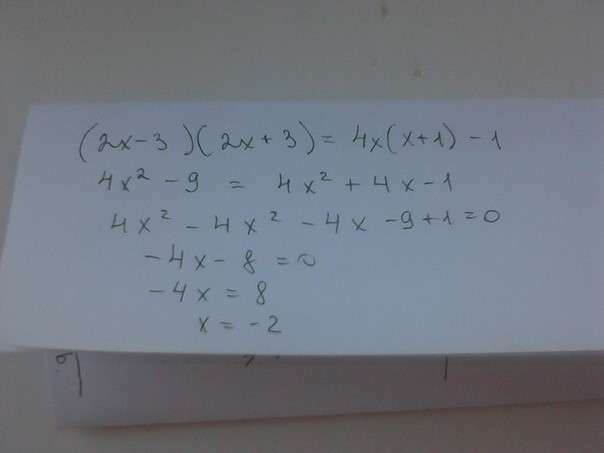 (2x-3)(2x+3)= 4x(x+1)-1
4x² - 9 = 4x² + 4x-1
4x² - 4x² - 4x -9+1=0
-4x- 8 =0
-4x = 8
x = -2